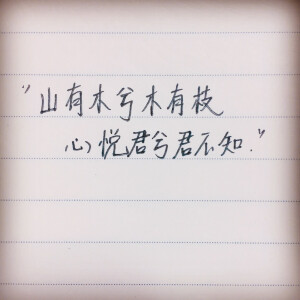 “山有木兮木有枝
心悦君兮君不知.”